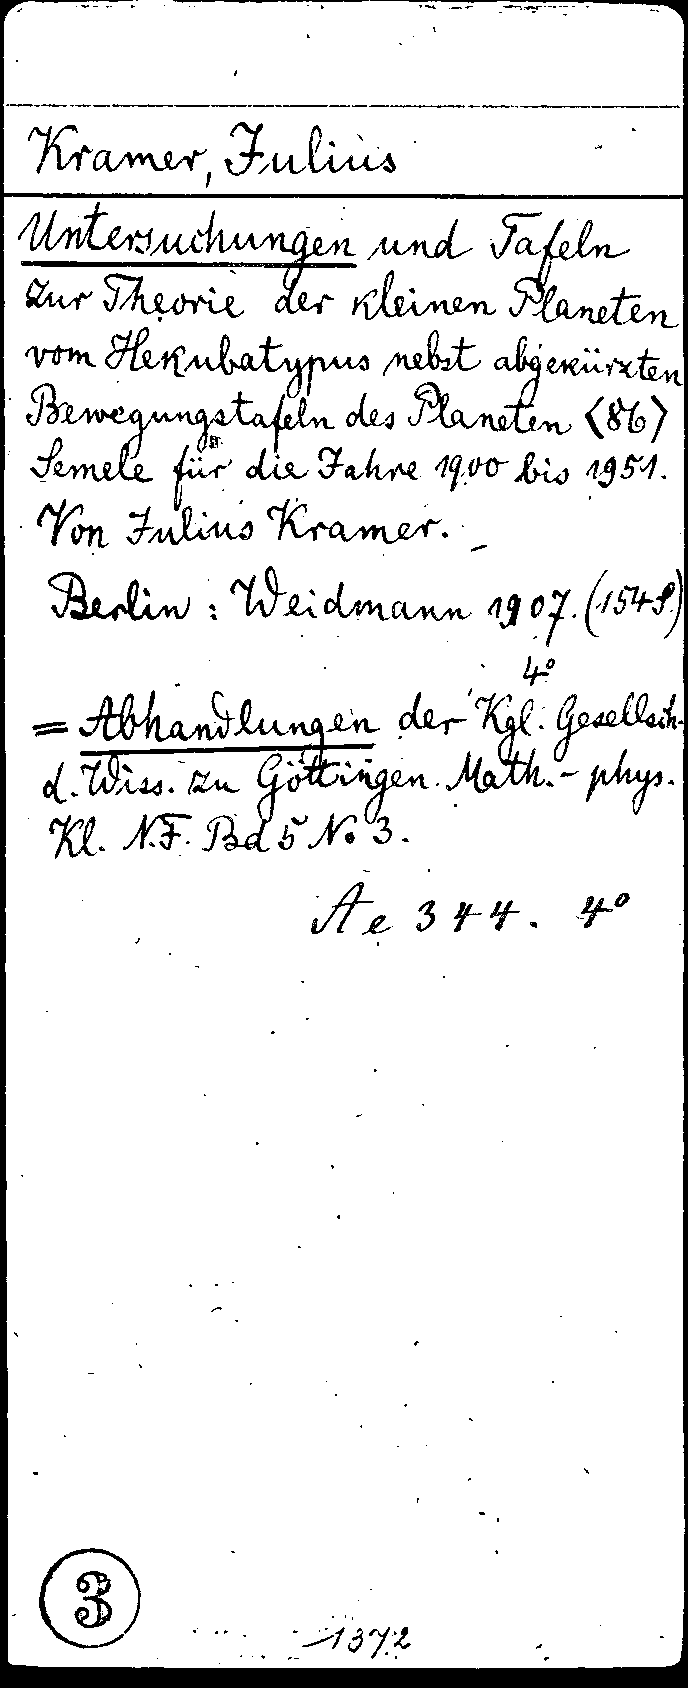 Kramer, Julius
Untersuchungen und Tafeln
zur Theorie der kleinen Planeten
vom Hekubatypus nebst abgekürzten
Bewegungstafeln des Planeten <86>
Semele für die Jahre 1900 bis 1951.
Von Julius Kramer. _
Berlin : Weidmann 1907. (154 S.)
4°
= Abhandlungen der Kgl. Gesellsch.
d. Wiss. zu Göttingen. Math.- phys.
Kl. N.F. Bd 5 No 3.
Ae 344. 4°
3
1372